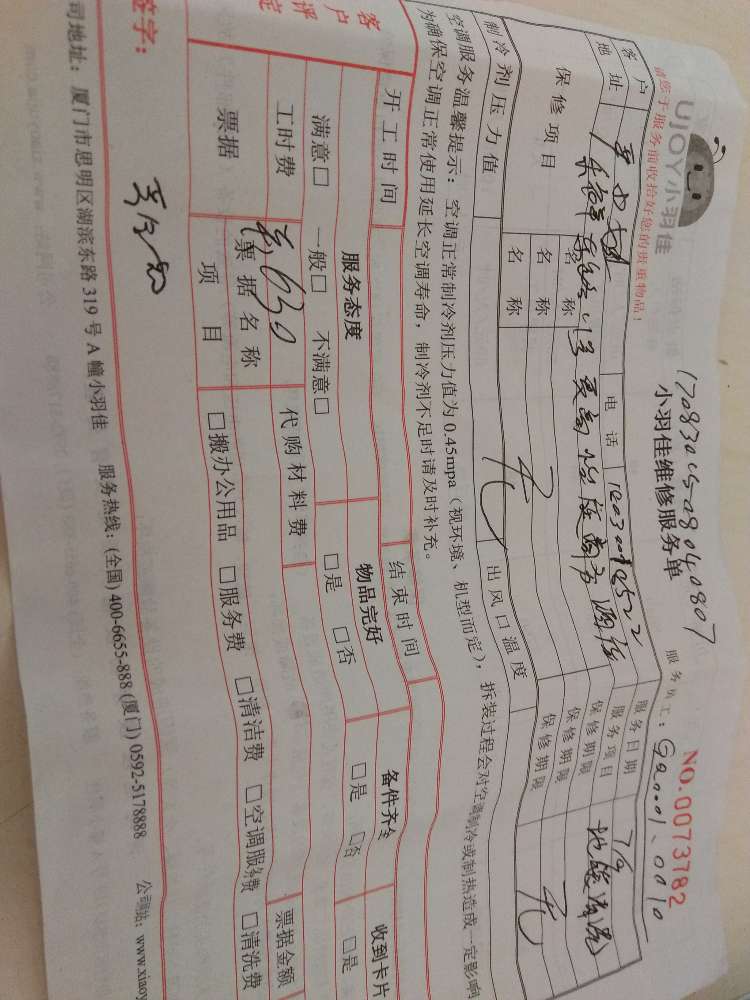 请您于服务前收拾好您的贵重物品！
UJOY小羽佳
170830150804 0807
小羽佳维修服务单
NO.0073782
服务员工：
客户
电话
服务日期
7/9
地址
服务项目
地暖清洗
保修项目
名称
保修期限
名称
保修期限
名称
保修期限
制冷剂压力值
无
出风口温度
无
空调服务温馨提示：空调正常制冷剂压力值为0.45mpa（视环境、机型而定），拆装过程会对空调制冷或制热造成一定影响
为确保空调正常使用延长空调寿命，制冷剂不足时请及时补充。
开工时间
结束时间
客户评定
服务态度
物品完好
备件齐全
收到卡片
满意□ 一般□ 不满意□
□是 □否
□是 □否
□是
工时费
630
代购材料费
票据
票据名称
票据金额
项目
□搬办公用品 □服务费 □清洁费 □空调服务费 □清洗费
签字：
司地址：厦门市思明区湖滨东路319号A幢小羽佳 服务热线：(全国) 400-6655-888 (厦门) 0592-5178888 公司网站：www.xiaoy